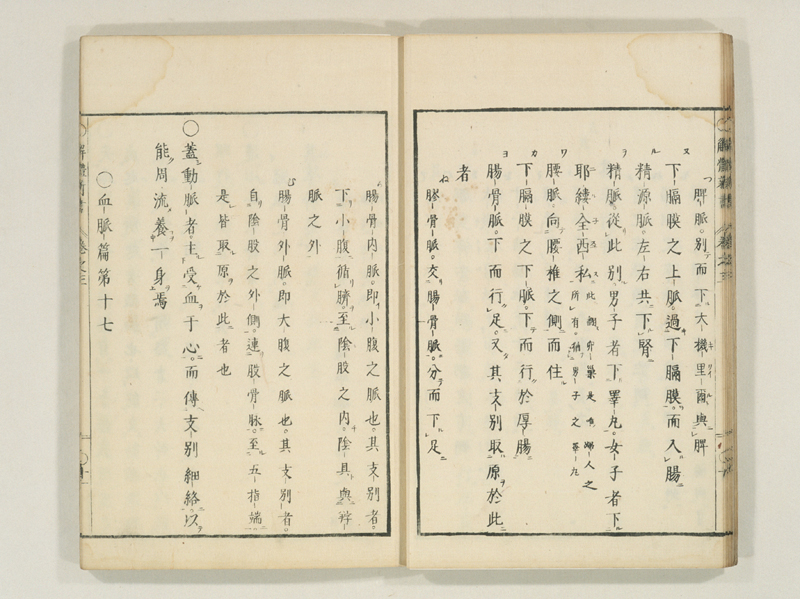 脾脈別而下大機里爾與脾
下膈膜之上脈過下膈膜而入腸
精源脈左右共下腎
精脈從此別男子者下睪丸女子者下
耶縷全西私此翻卵巢是婦人之所有猶男子之睪丸
腰脈向腰椎之側而住
下膈膜之下脈下而行於厚腸
腸骨脈下而行足又其支別取原於此
者
髎骨脈交腸骨脈分而下足
腸骨内脈即小腹之脈也其支別者
下小腹循臍至陰股之内陰具與
脈之外
腸骨外脈即大腹之脈也其支別者
自陰股之外側連股骨脈至五指端
是皆取原於此者也
〇蓋動脈者主受血于心而傳支別細絡以
能周流養一身焉
〇血脈篇第十七